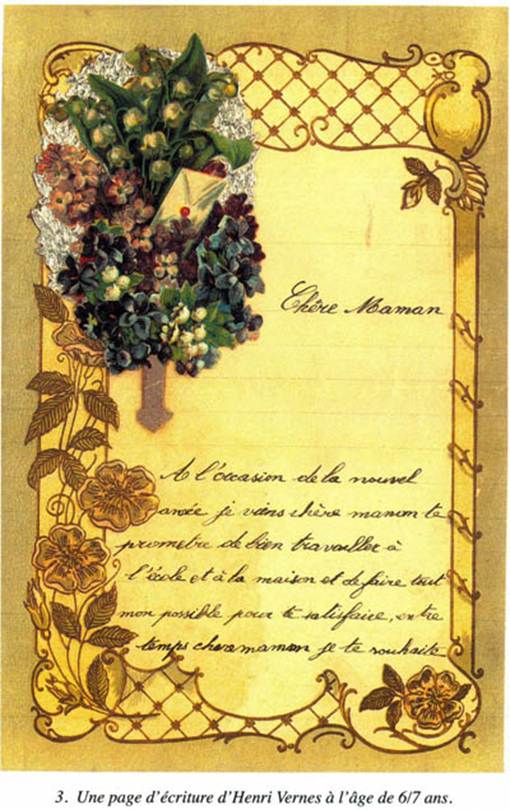 Chère Maman
A l'occasion de la nouvel
anée je viens chère maman te
prometre de bien travailler à
l'école et à la maison et de faire tout
mon possible pour te satisfaire, entre
temps chere maman je te souhaite
3. Une page d'écriture d'Henri Vernes à l'âge de 6/7 ans.